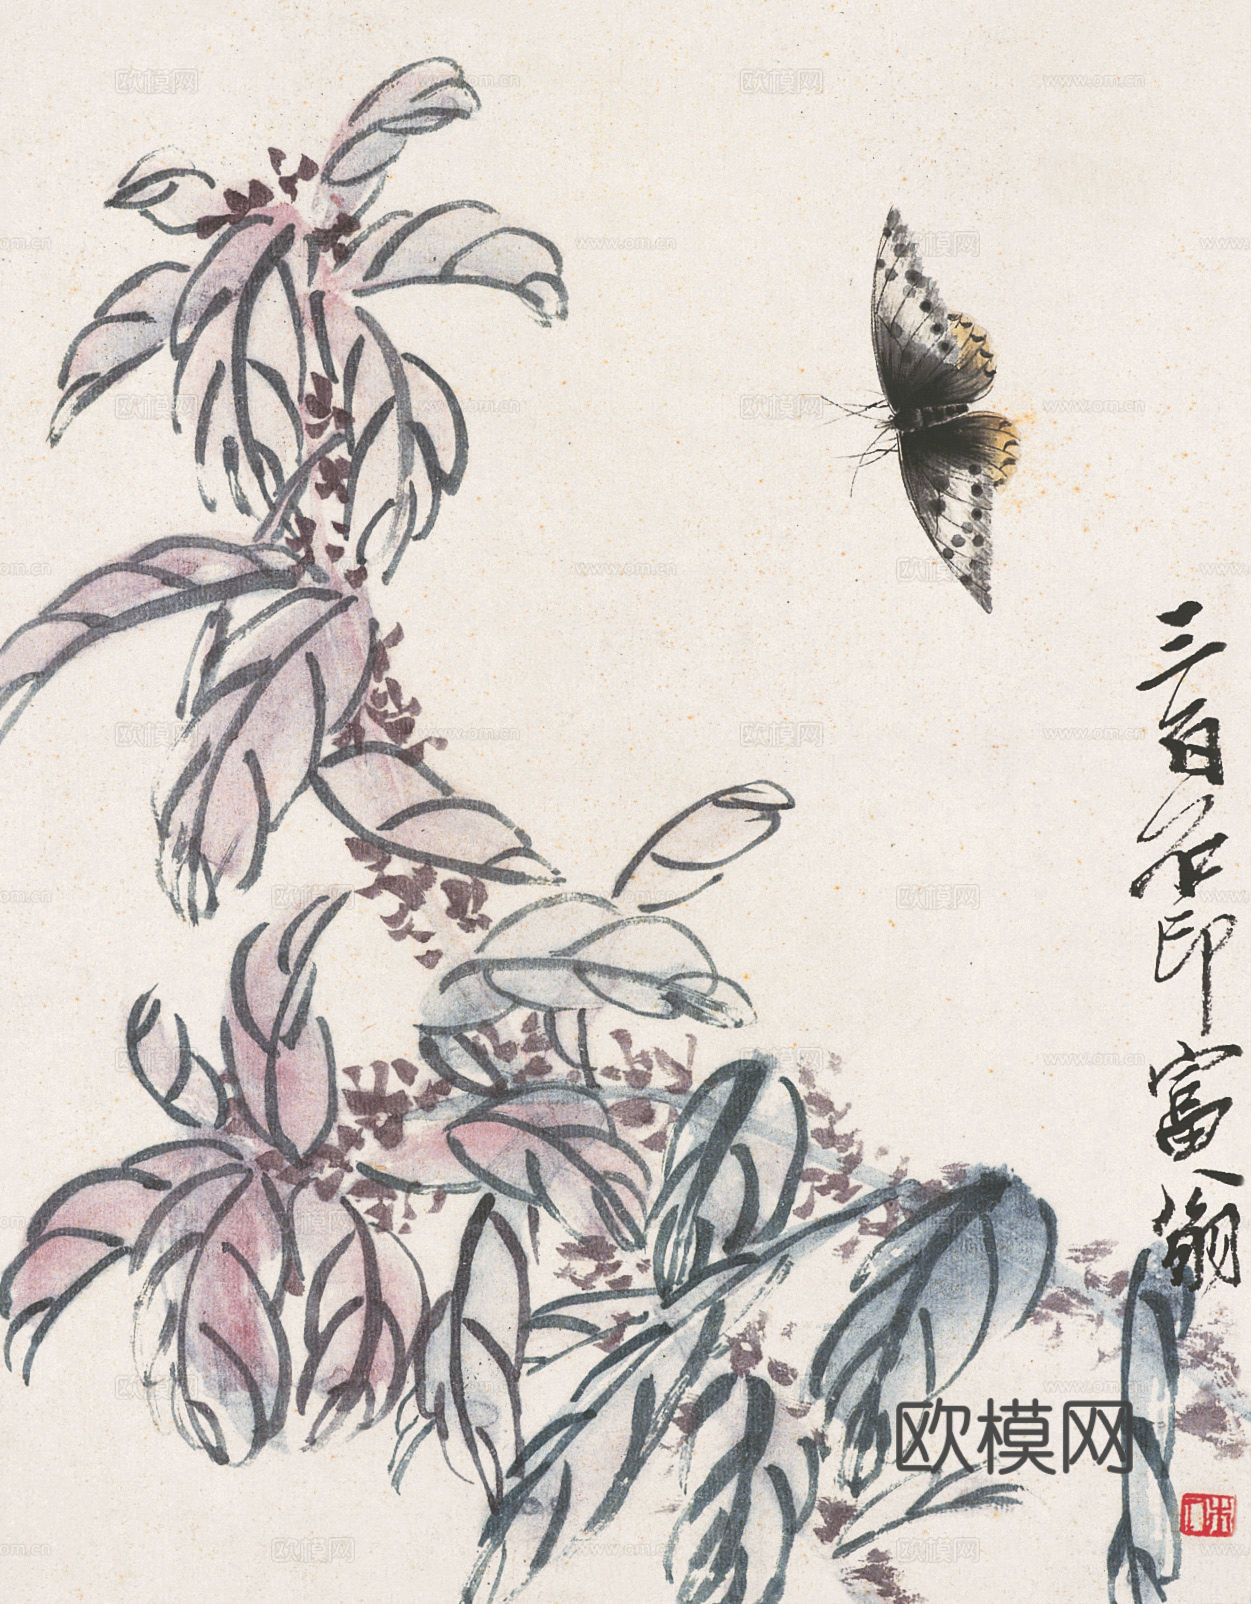 三百石印富翁
木人
欧模网
欧模网
www.om.cn